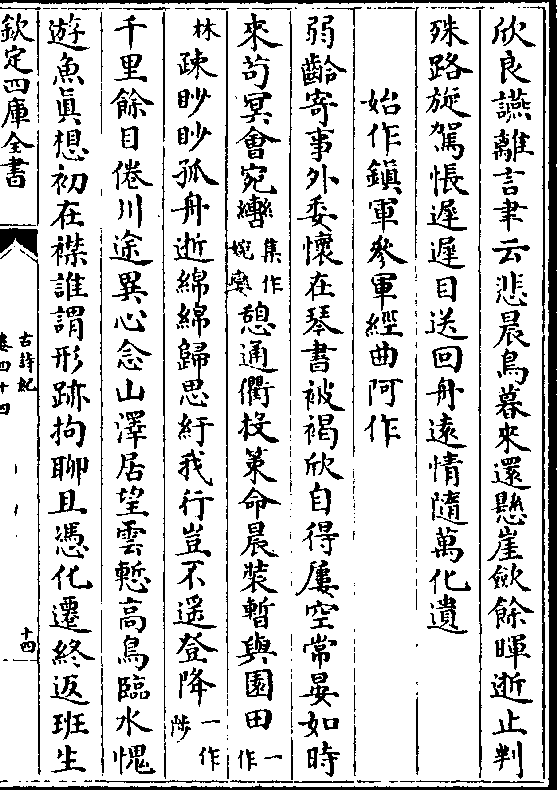 欣良讌離言聿云悲晨鳥暮來還懸崖斂餘暉逝止判
殊路旋駕悵遲遲目送回舟遠情隨萬化遺
始作鎮軍參軍經曲阿作
弱齡寄事外委懷在琴書被褐欣自得屢空常晏如時
來苟冥會宛轡集作婉孌憩通衢投策命晨裝暫與園田一作
林疎眇眇孤舟逝綿綿歸思紆我行豈不遥登降一作陟
千里餘目倦川途異心念山澤居望雲慙高鳥臨水愧
遊魚眞想初在襟誰謂形跡拘聊且憑化遷終返班生
欽定四庫全書
古詩紀
卷四十四
十四